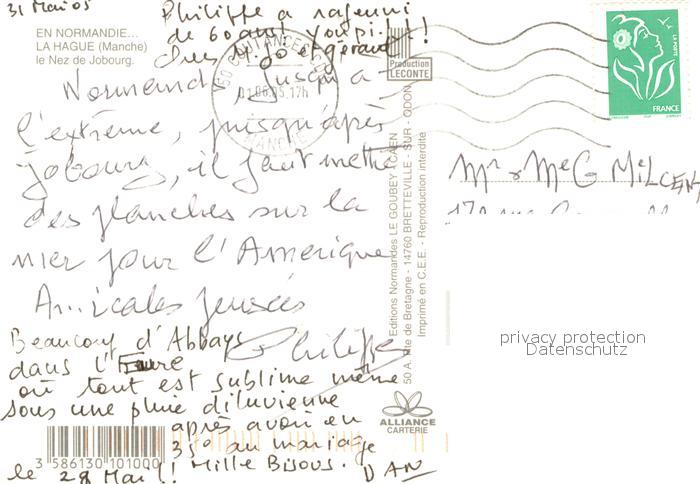 31 Mai 05
Philippe a rajeuni
de 60 ans! youpi!!!
chers M.Jo et gérard
EN NORMANDIE...
LA HAGUE (Manche)
le Nez de Jobourg.
Normand, jusqu'à
l'extrême, puisqu'après
Jobourg, il faut mettre
des planches sur la
mer pour l'Amérique
Amicales pensées
Philippe
Beaucoup d'Abbayes
dans l'Eure
où tout est sublime même
sous une pluie diluvienne
après avoir eu
35° au mariage
le 28 Mai! Mille Bisous.
DAN
3 586130 101000
Production
LECONTE
50 COUTANCES
01.06.05.17h
MANCHE
Editions Normandes LE GOUBEY - CAEN
50 A, Rte de Bretagne - 14760 BRETTEVILLE - SUR - ODON
Imprimé en C.E.E. - Reproduction interdite
ALLIANCE
CARTERIE
LA POSTE
FRANCE
Mr & Me G MILCENT
privacy protection
Datenschutz